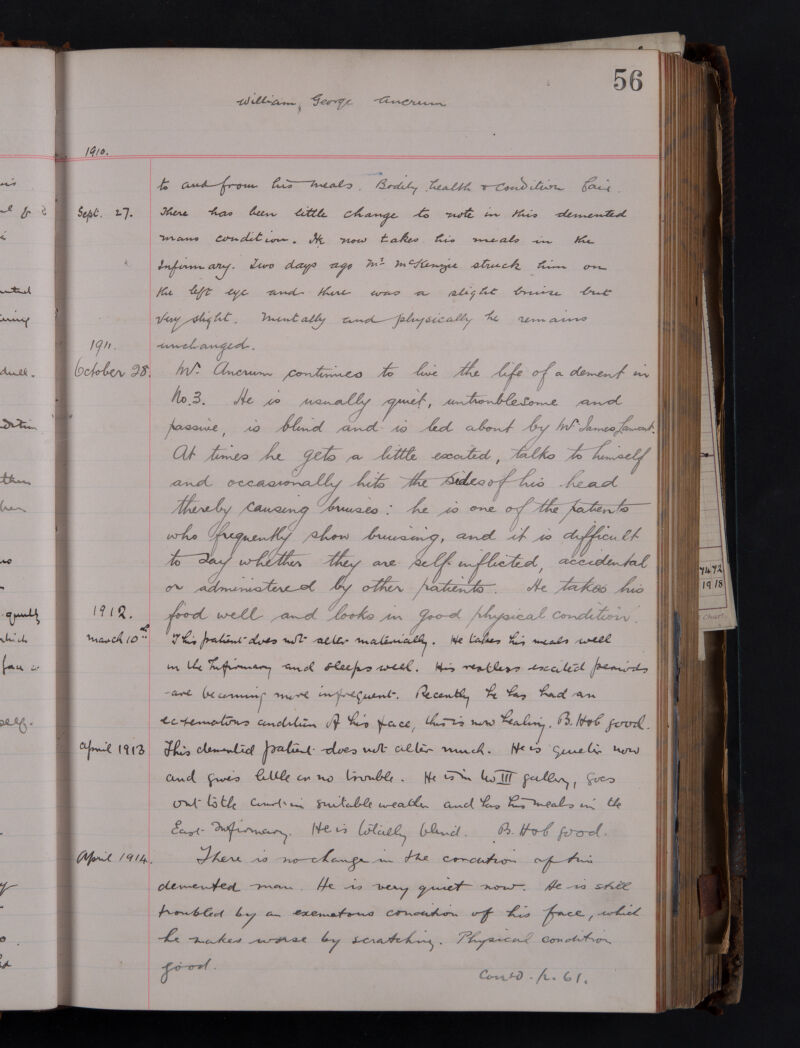 56
William, George Ancrum
1910.
to and from his meals. Bodily health & condition fair.
Sept. 27. There has been little change to note in this demented
mans condition. He now takes his meals in the
Infirmary. Two days ago Mr McKenzie struck him on
the left eye and there was a slight bruise but
very slight. Mentally and physically he remains
unchanged.
1911.
October 28. Mr. Ancrum continues to live the life of a dement in
No. 3. He is usually quiet, untroublesome and
passive, is blind and is led about by Mr James Lamont.
At times he gets a little excited, talks to himself
and occasionally hits the sides of his head
thereby causing bruises: he is one of the patients
who frequently show bruising, and it is difficult
to say whether they are self inflicted, accidental
or administered by other patients. He takes his
food well and looks in good physical condition.
1912.
March 10th This patient does not alter materially. He takes his meals well
in the Infirmary and sleeps well. His restless excited periods
are becoming more infrequent. Recently he has had an
eczematous condition of his face, this is now healing. B. Hth good.
April 1913 This demented patient does not alter much. He is quieter now
and gives little or no trouble. He is in No III gallery, goes
out to the court in suitable weather and has his meals in the
East Infirmary. He is totally blind. B. Hth good.
April 1914. There is no change in the condition of this
demented man. He is very quiet now. He is still
troubled by an exematous condition of his face, which
he makes worse by scratching. Physical condition
good.
Contd. p. 61.
7472
1918
Chart.
dull.
then
quietly
which
self.